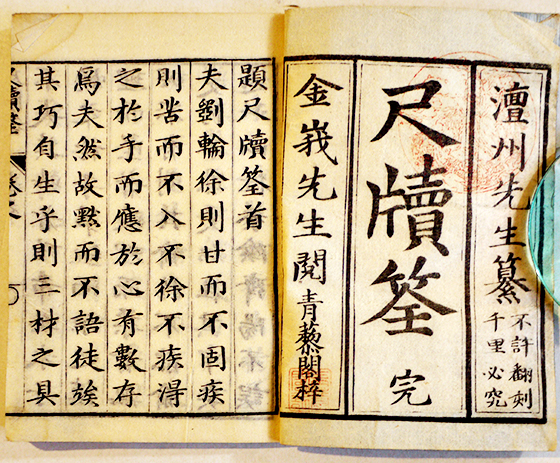 澶州先生纂
不許翻刻
千里必究
尺牘筌
完
金峩先生閱
青藜閣梓
題尺牘筌首
夫劉輪徐則甘而不固疾
則苦而不入不徐不疾淂
之於手而應於心有數存
焉夫然故默而不語徒竢
其巧自生乎則三材之具
尺牘筌